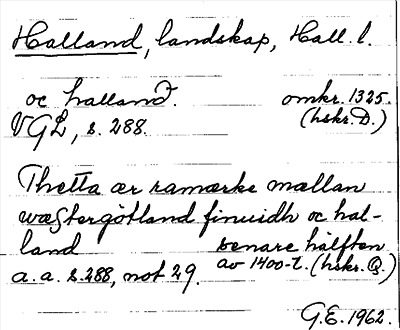 Halland, landskap, Hall. l.
oc halland. omkr. 1325.
VGL, s. 288. (hskr. D.)
Thetta ær ramærke mællan
wæstergötland finuidh oc hal-
land senare hälften
a. a. s. 288, not 29. av 1400-t. (hskr. Q.)
G.E. 1962.